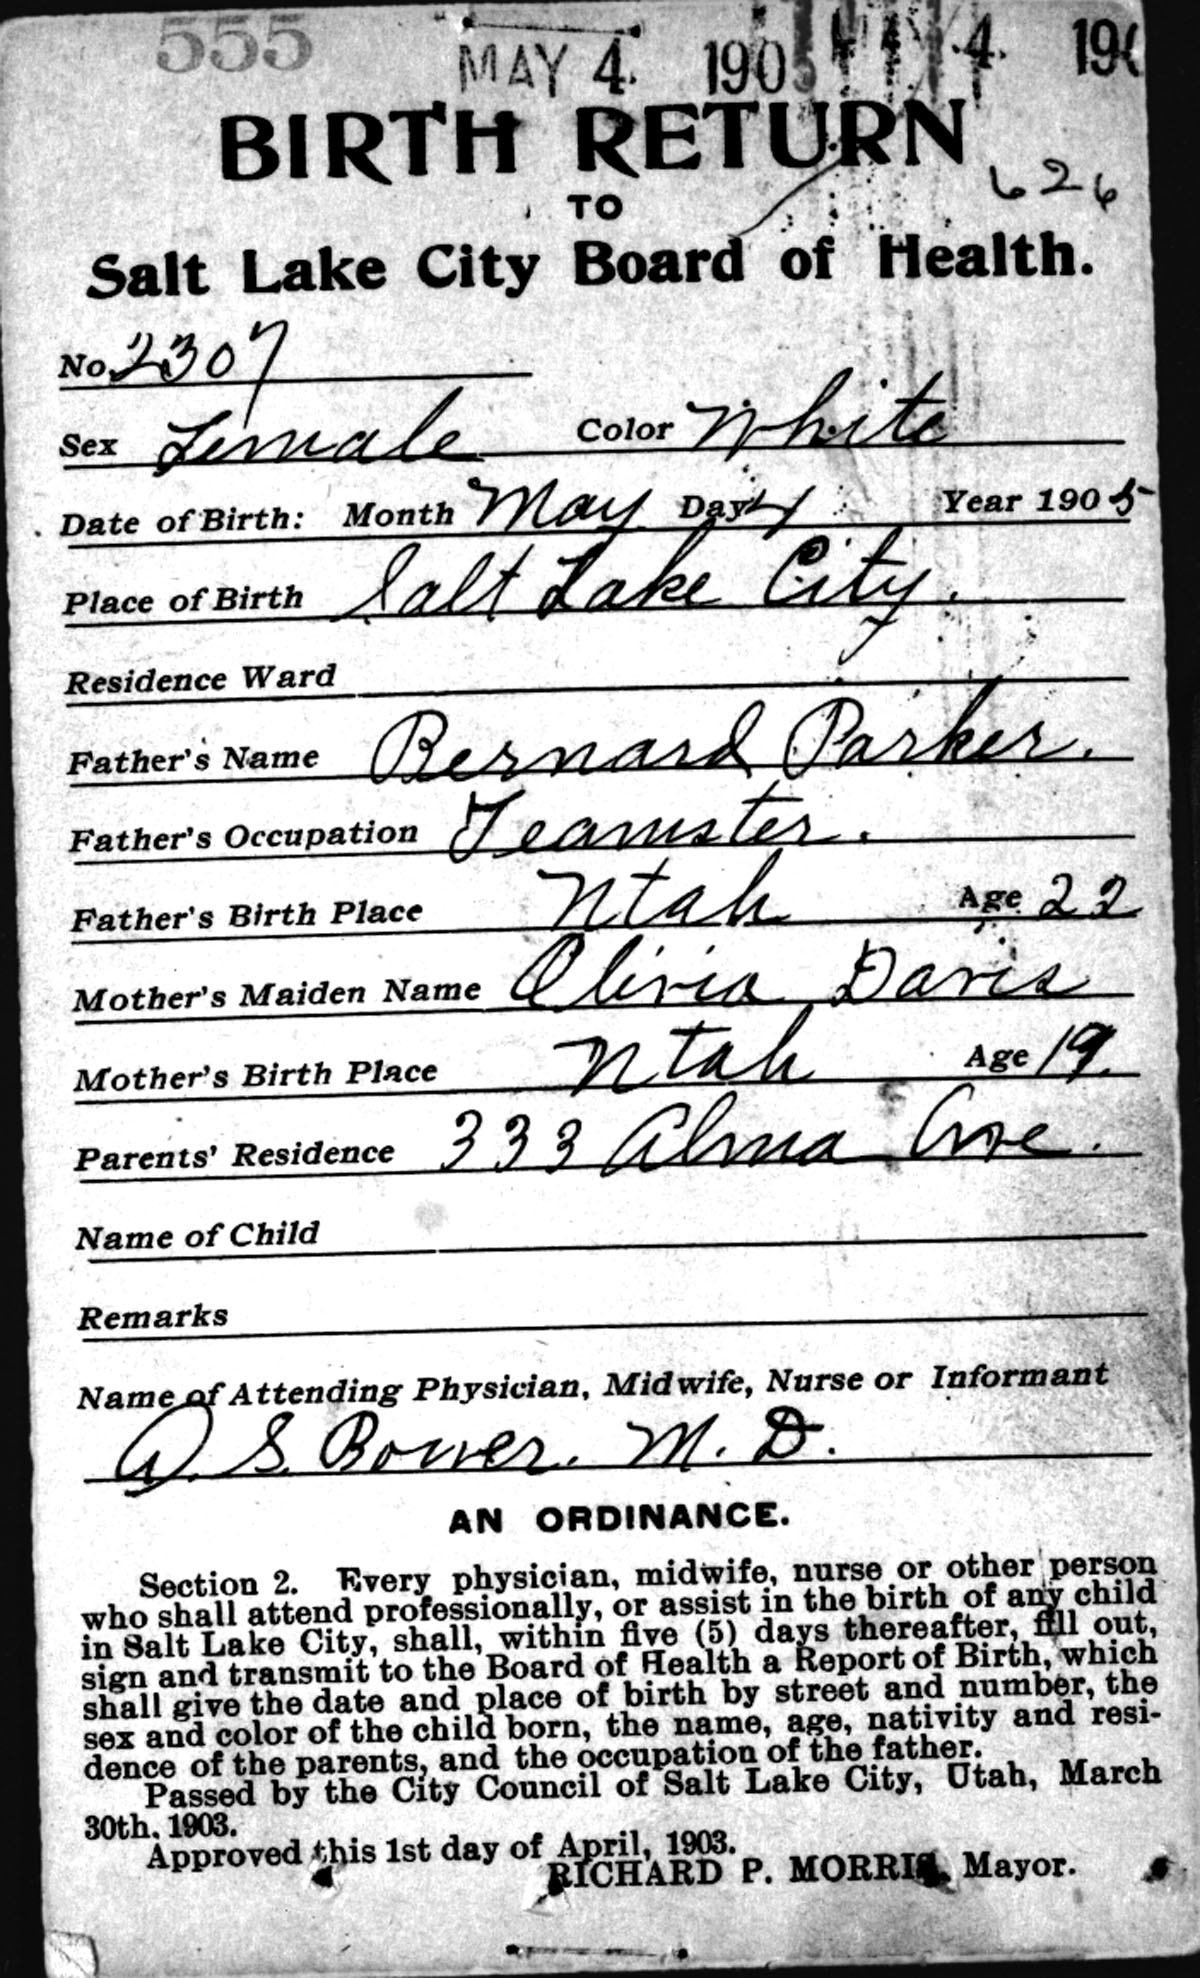 555 MAY 4 1905 MAY 4 190
BIRTH RETURN
626
TO
Salt Lake City Board of Health.
No. 2307
Sex Female Color White
Date of Birth: Month May Day 4 Year 1905
Place of Birth Salt Lake City.
Residence Ward
Father's Name Bernard Parker.
Father's Occupation Teamster.
Father's Birth Place Utah Age 22
Mother's Maiden Name Olivia Davis
Mother's Birth Place Utah Age 19.
Parents' Residence 333 Alma Ave.
Name of Child
Remarks
Name of Attending Physician, Midwife, Nurse or Informant
S. Bower. M. D.
AN ORDINANCE.
Section 2. Every physician, midwife, nurse or other person
who shall attend professionally, or assist in the birth of any child
in Salt Lake City, shall, within five (5) days thereafter, fill out,
sign and transmit to the Board of Health a Report of Birth, which
shall give the date and place of birth by street and number, the
sex and color of the child born, the name, age, nativity and resi-
dence of the parents, and the occupation of the father.
Passed by the City Council of Salt Lake City, Utah, March
30th, 1903.
Approved this 1st day of April, 1903.
RICHARD P. MORRIS, Mayor.